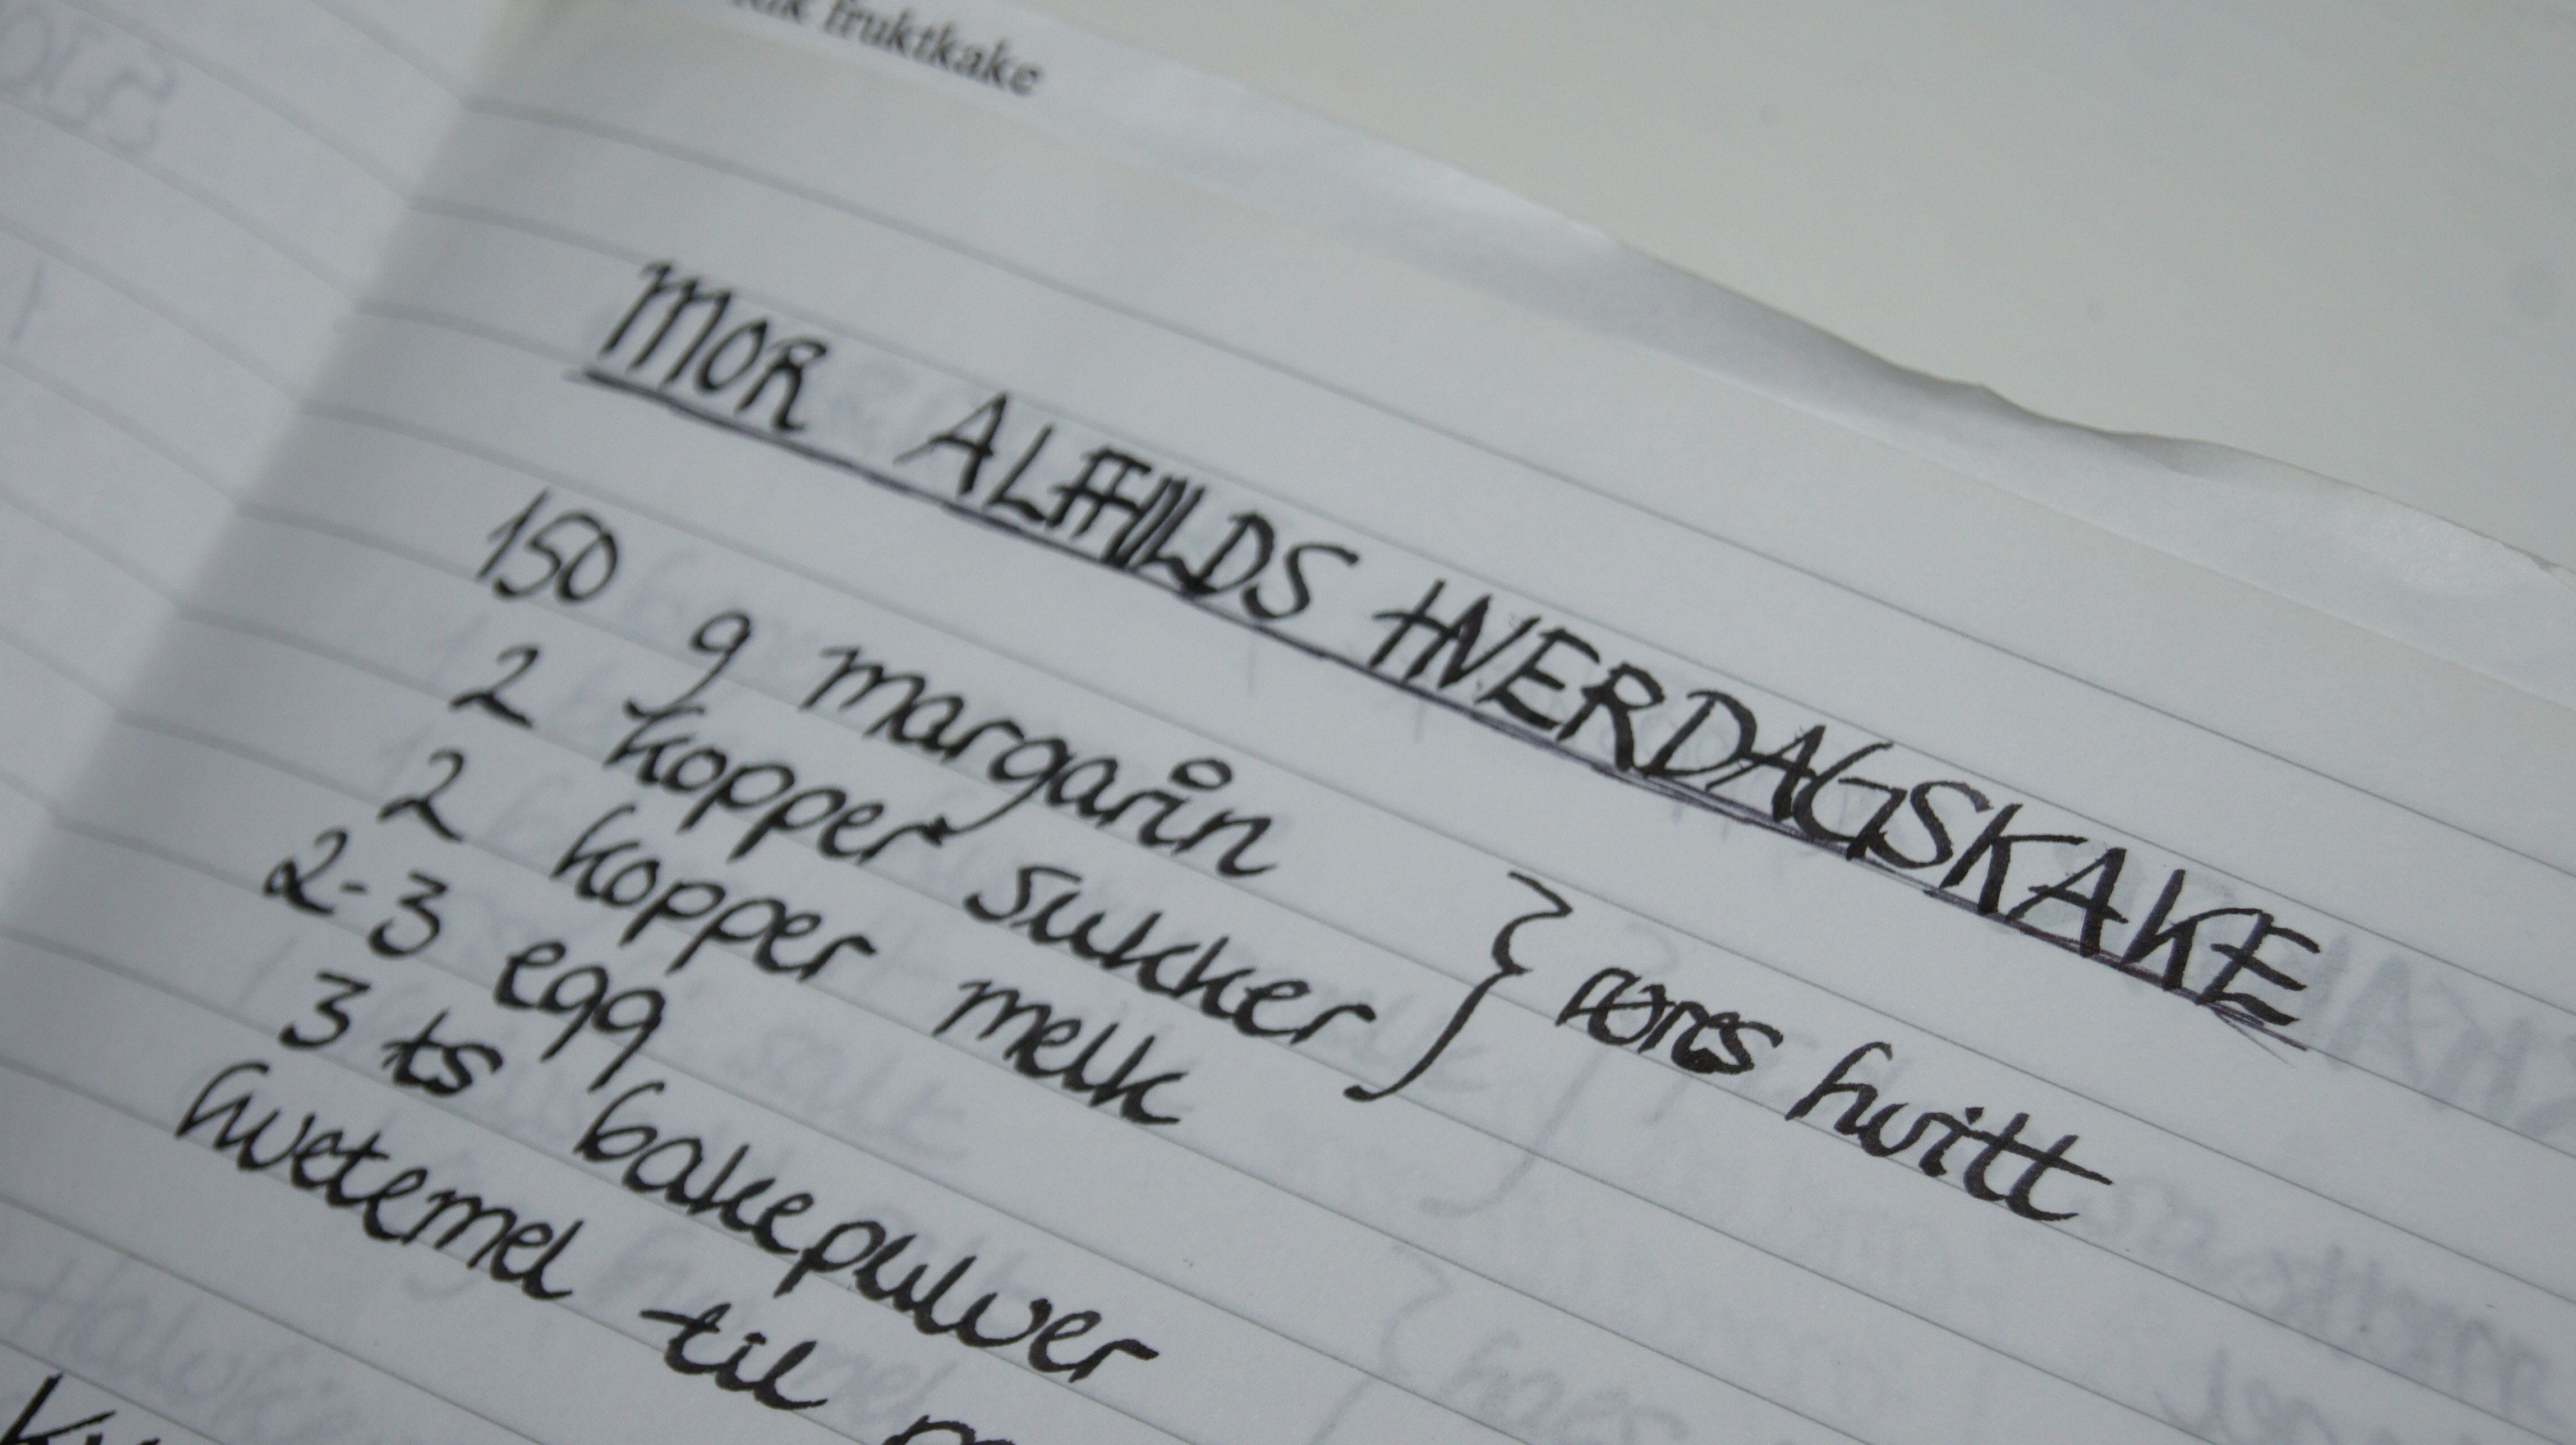 fruktkake
MOR ALFHILDS HVERDAGSKAKE
150 g margarin
2 kopper sukker } røres hvitt
2 kopper melk
2-3 egg
3 ts bakepulver
hvetemel til